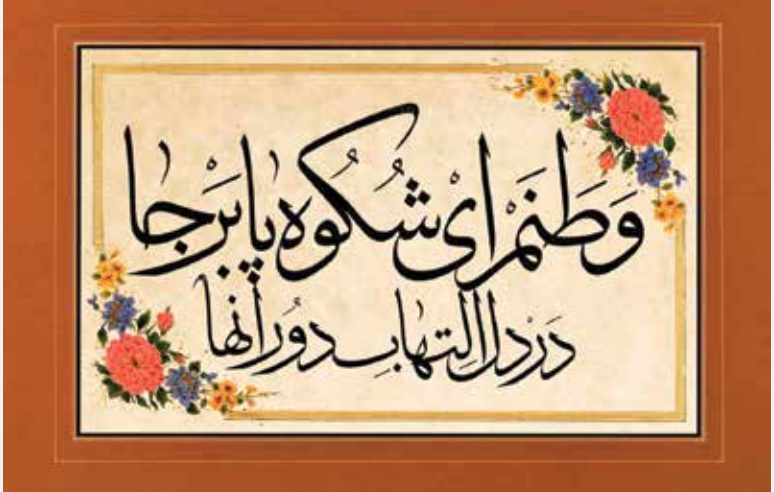 وَطَنَمْ اىْ شُكُوهْ پابَرْجا
دَرْ دل اِلتهابِ دُورانها